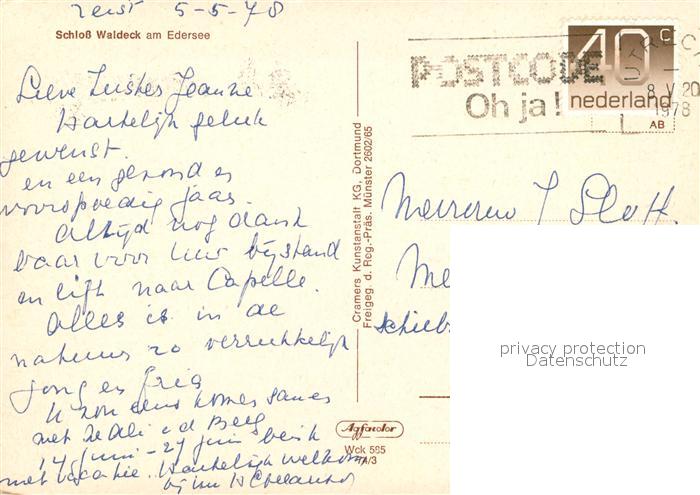 Zeist 5-5-78
Schloß Waldeck am Edersee
Lieve Zuster Jeanne
Hartelijk geluk
gewenst.
en een gezond en
voorspoedig jaar.
Altijd nog dank
baar voor Uw bijstand
en lift naar Capelle.
Alles is in de
natuur zo verrukkelijk
jong en fris
U zou eens komen samen
met
14 juni - 27 juni ben ik
met vacatie. Hartelijk welkom
bij
Cramers Kunstanstalt KG, Dortmund
Freigeg. d. Reg.-Präs. Münster 2602/65
POSTCODE
Oh ja!
40 c
nederland
UTRECH
8 V 20
1978
AB
Mevrouw J
Me
schieb
privacy protection
Datenschutz
Agfacolor
Wck 585